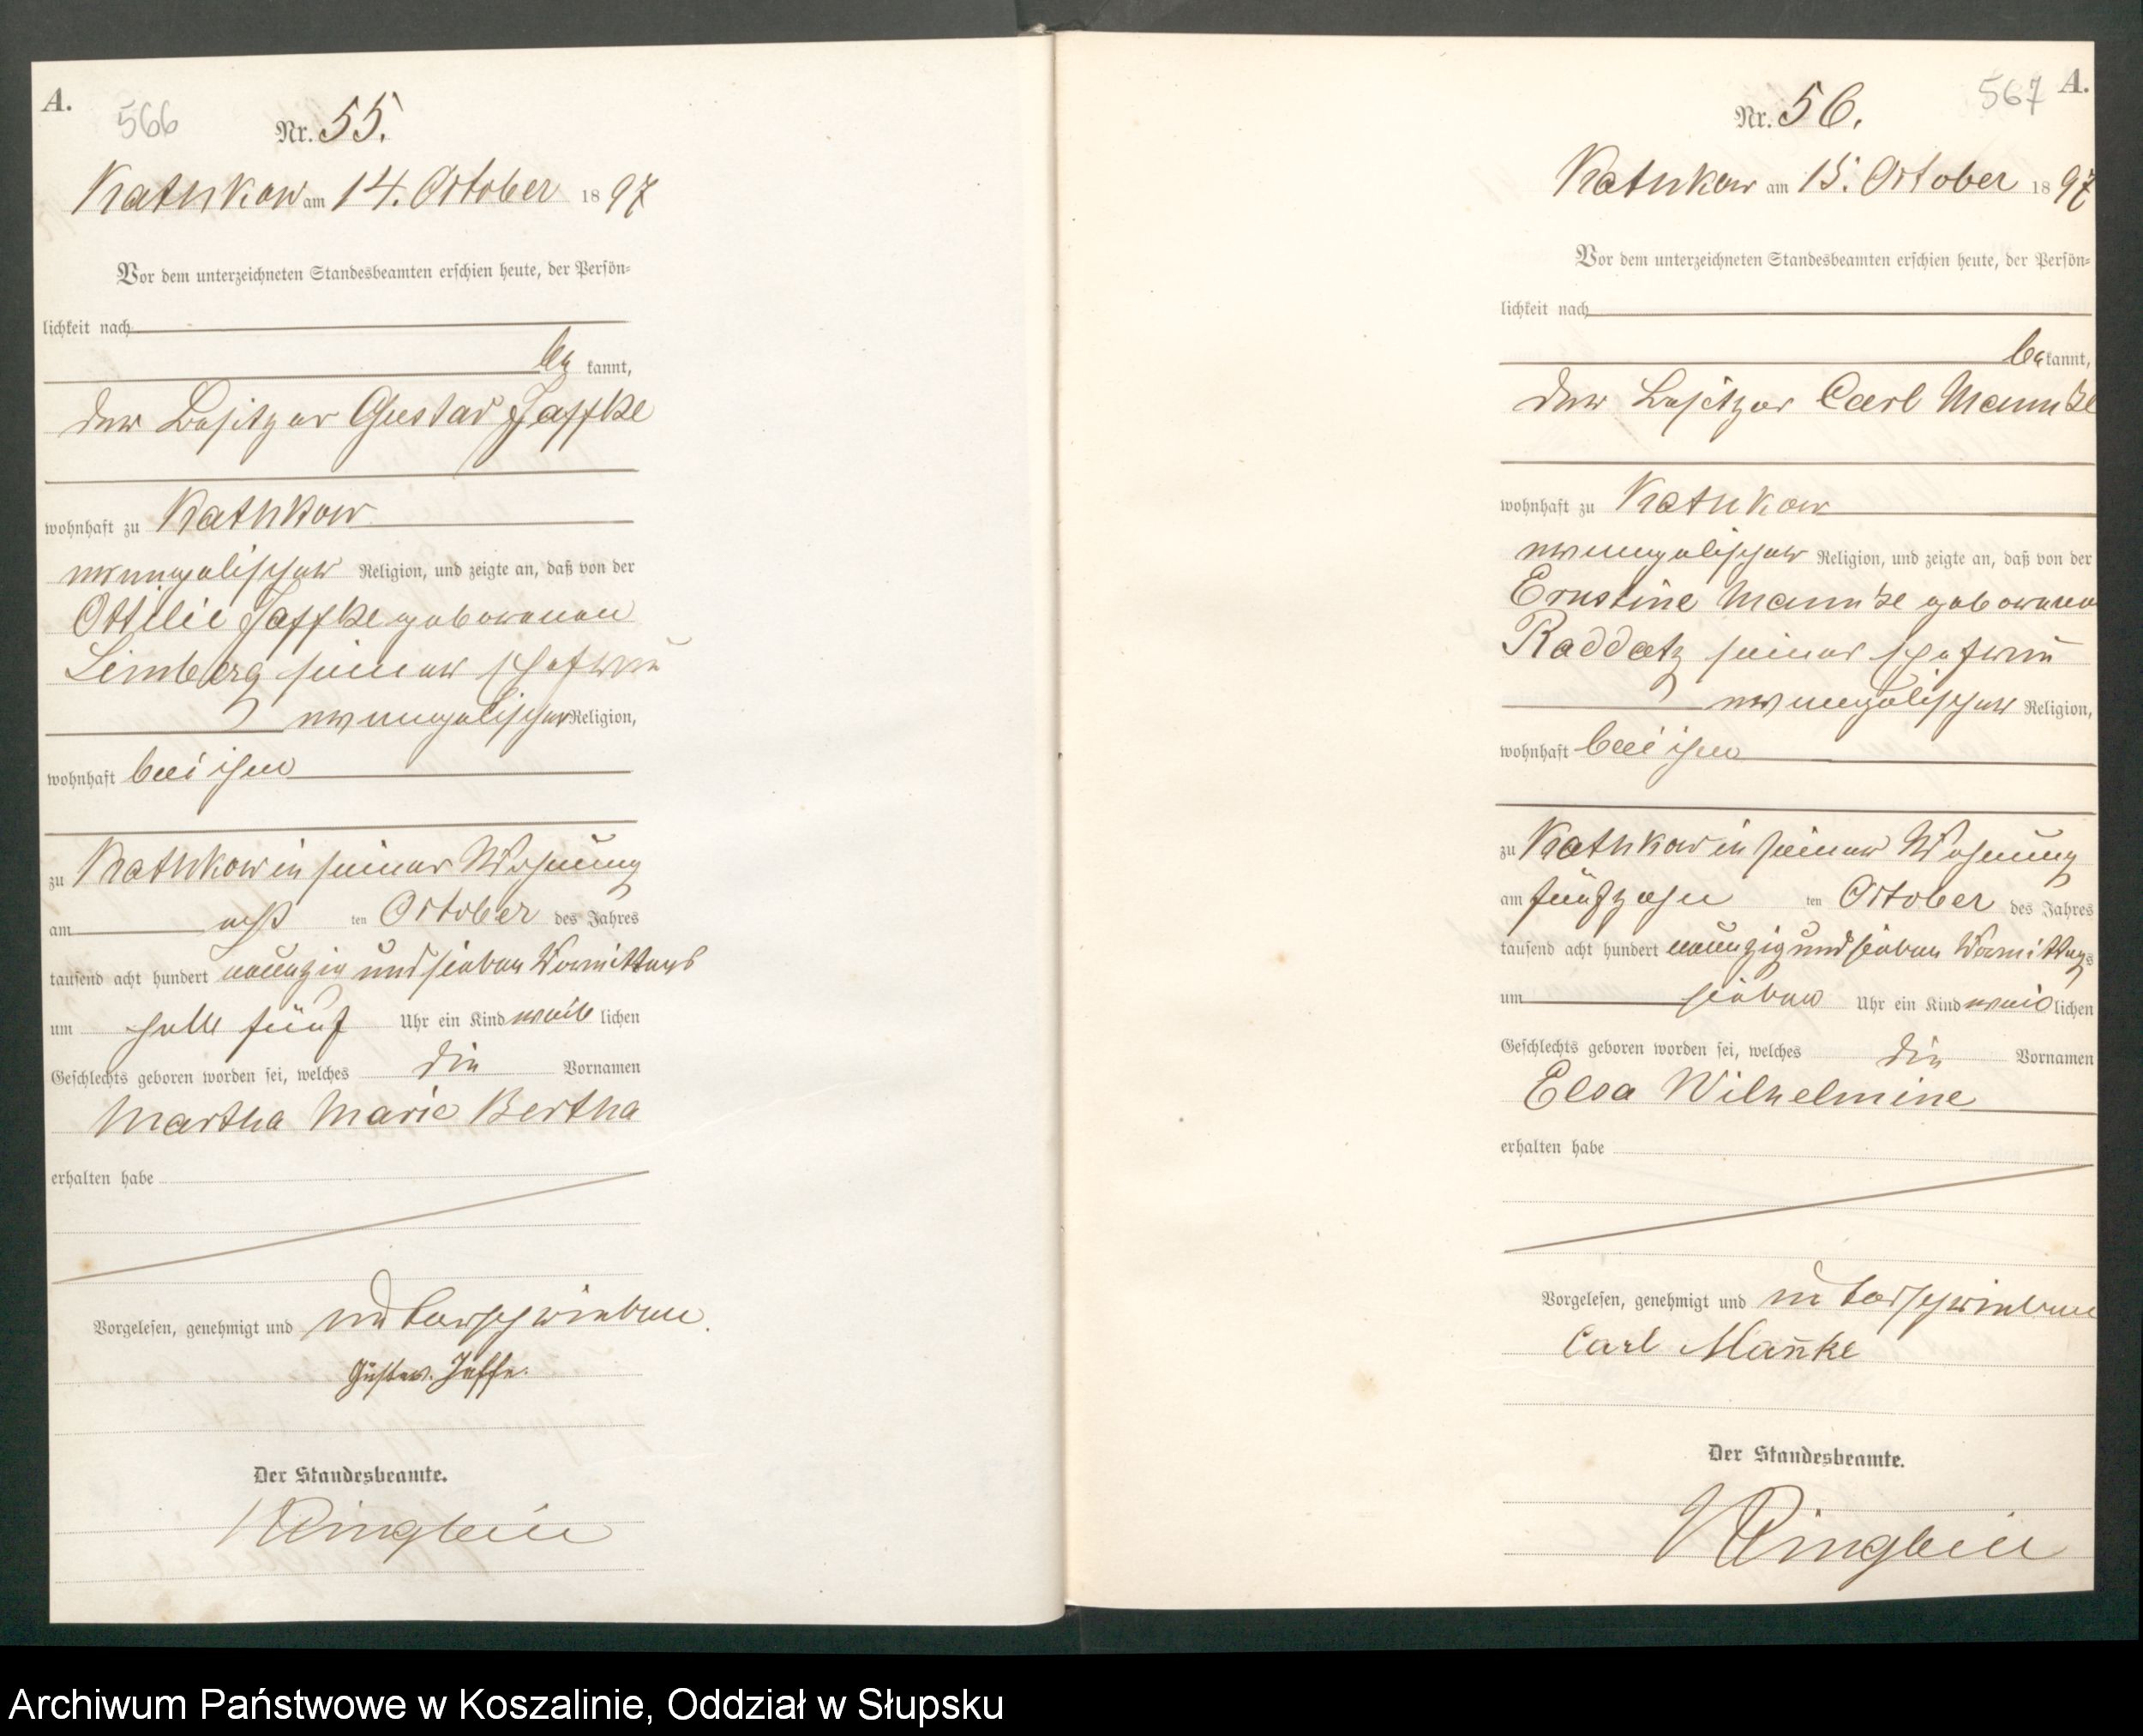 A.
566
Nr. 55.
Kathkow am 14. October 1897
Vor dem unterzeichneten Standesbeamten erschien heute, der Persön-
lichkeit nach
be kannt,
der Besitzer Gustav Jaffke
wohnhaft zu Kathkow
evangelischer Religion, und zeigte an, daß von der
Ottilie Jaffke geborenen
Limberg seiner Ehefrau
evangelischer Religion,
wohnhaft bei ihm
zu Kathkow in seiner Wohnung
am acht ten October des Jahres
tausend acht hundert neunzig und sieben Vormittags
um halb fünf Uhr ein Kind weib lichen
Geschlechts geboren worden sei, welches die Vornamen
Martha Marie Bertha
erhalten habe
Vorgelesen, genehmigt und unterschrieben.
Gustav. Jaffke.
Der Standesbeamte.
Ringbein
567 A.
Nr. 56.
Kathkow am 15. October 1897
Vor dem unterzeichneten Standesbeamten erschien heute, der Persön-
lichkeit nach
be kannt,
der Besitzer Carl Mannke
wohnhaft zu Kathkow
evangelischer Religion, und zeigte an, daß von der
Ernstine Mannke geborenen
Raddatz seiner Ehefrau
evangelischer Religion,
wohnhaft bei ihm
zu Kathkow in seiner Wohnung
am fünfzehn ten October des Jahres
tausend acht hundert neunzig und sieben Vormittags
um sieben Uhr ein Kind weib lichen
Geschlechts geboren worden sei, welches die Vornamen
Elsa Wilhelmine
erhalten habe
Vorgelesen, genehmigt und unterschrieben
Carl Man̄ke
Der Standesbeamte.
Ringbein
Archiwum Państwowe w Koszalinie, Oddział w Słupsku